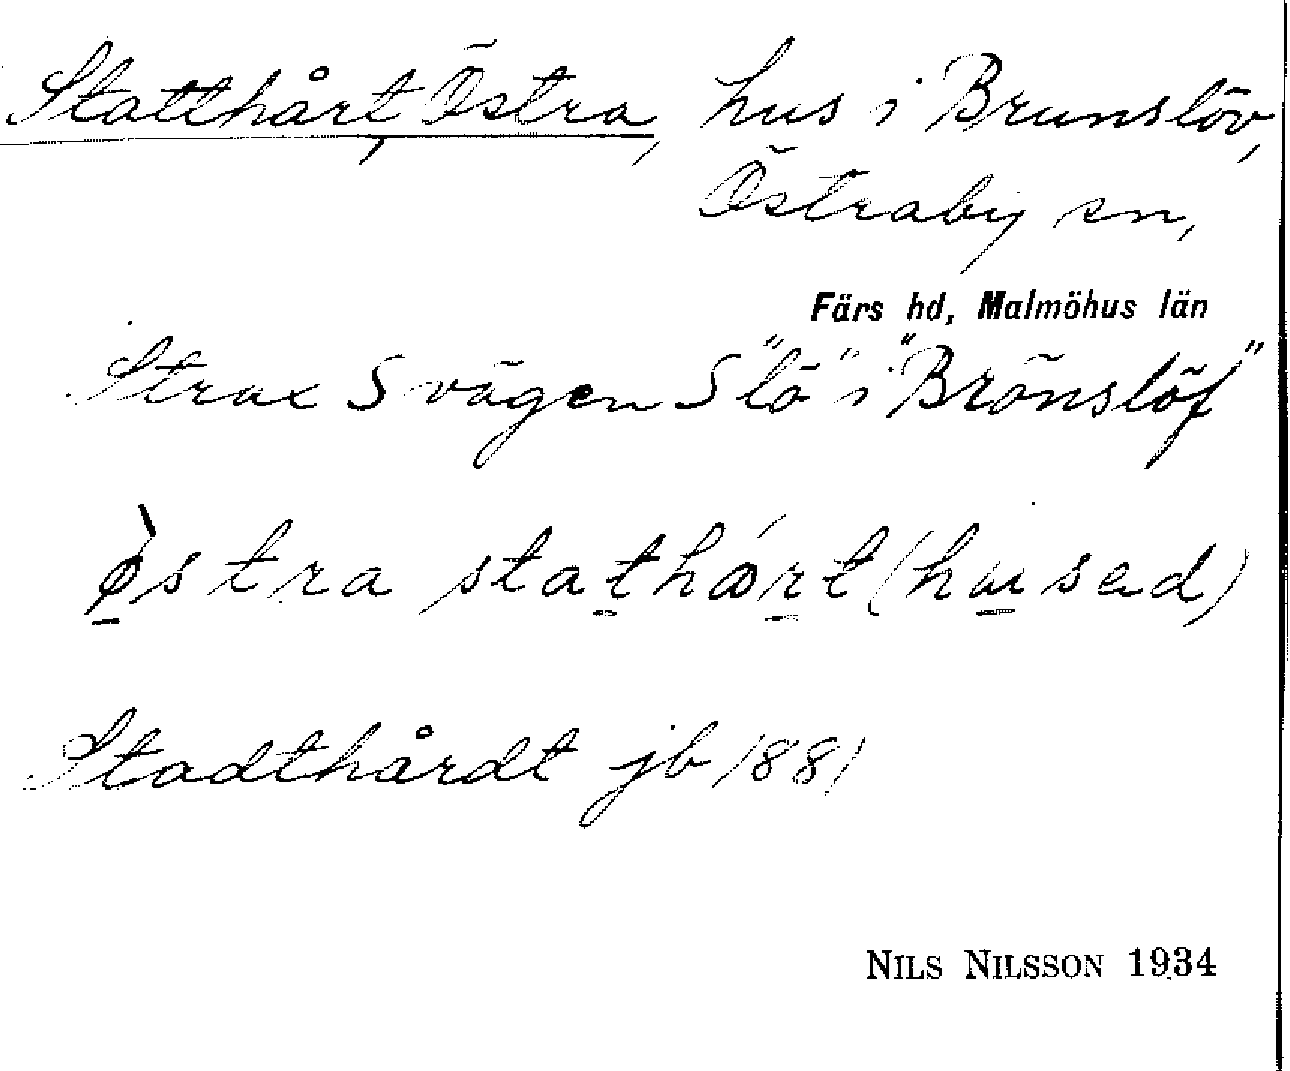 Statthårt, Östra, hus i Brunslöv,
Östraby sn,
Färs hd, Malmöhus län
Strax S vägen S "lö" i "Brönslöf"
ø̀stra stathårt (hused)
Stadthårdt jb 1881
NILS NILSSON 1934